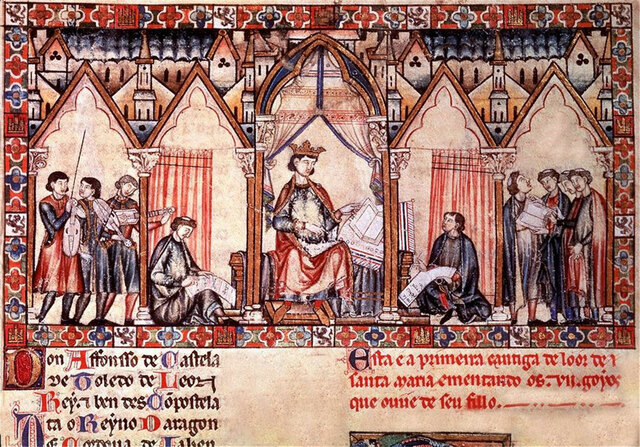 Don Affonsso de Castela
de Toledo de Leon
Rey ⁊ ben des Conpostela
ta o Reyno Daragon
De Cordoua de Jahen
Esta e a primeira cantiga de loor de
santa maria ementando os .vii. goyos
que ouue de seu fillo.